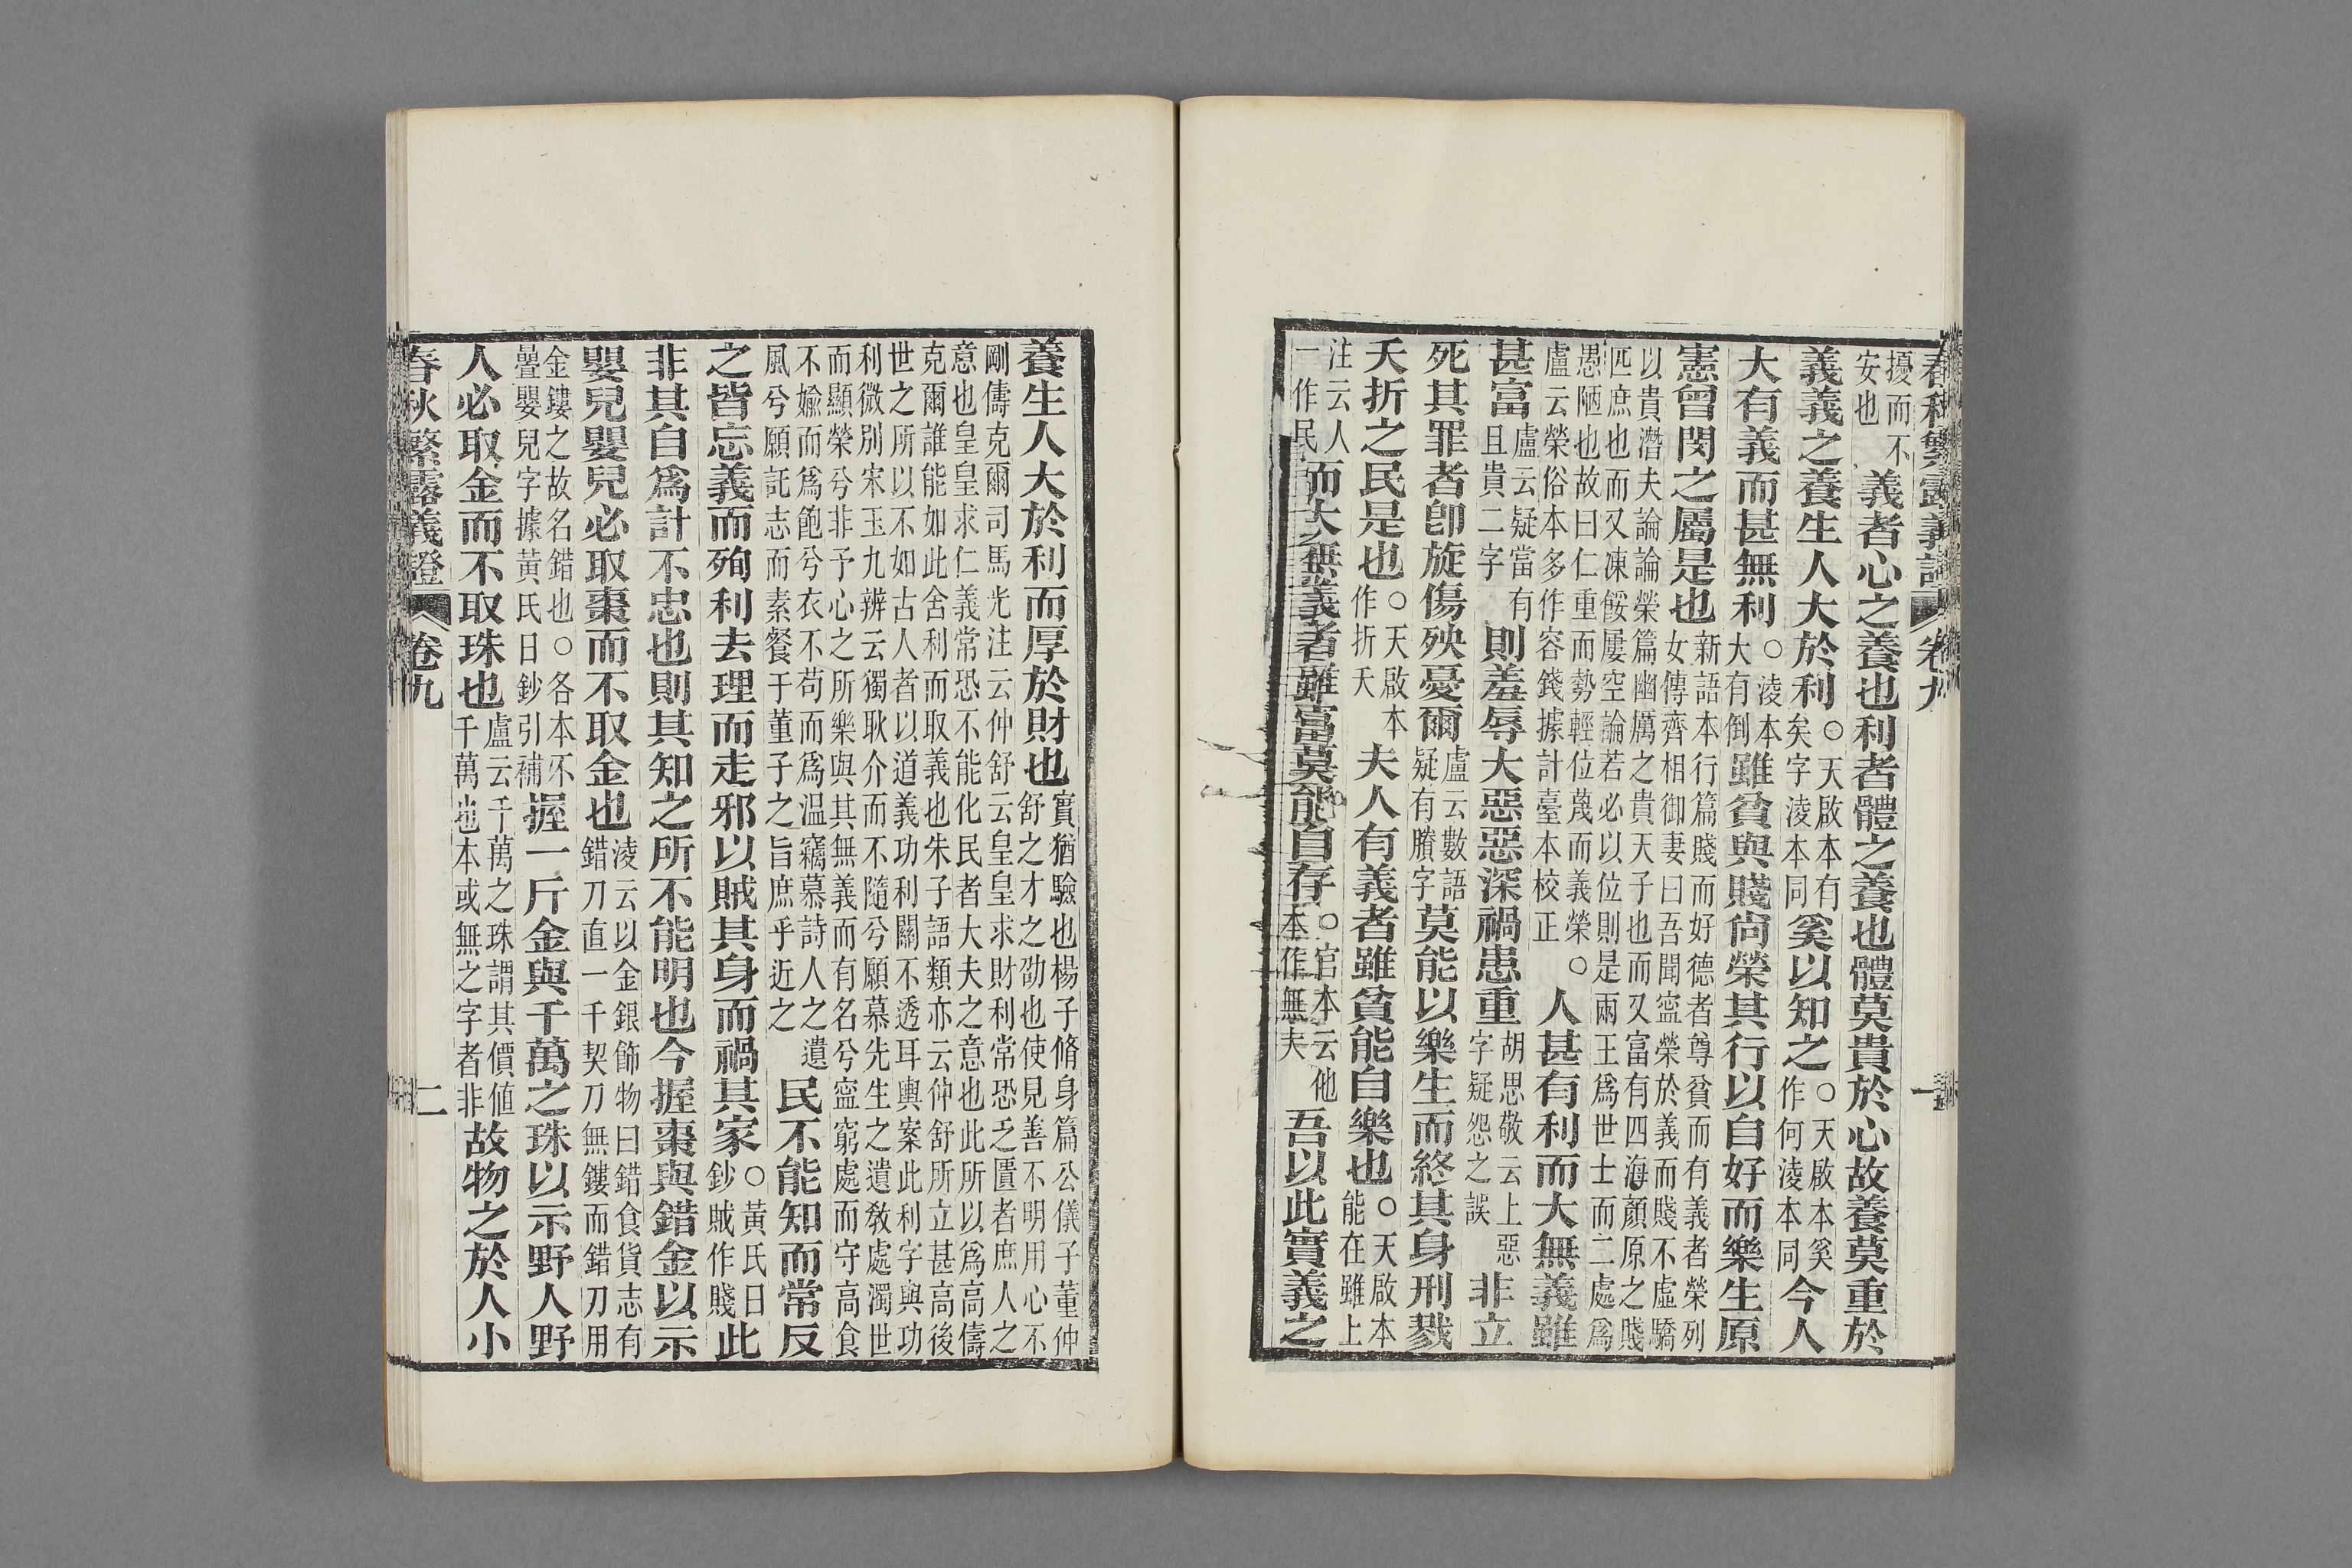 春秋繁露義證 卷九 一
擾而不安也義者心之養也利者體之養也體莫貴於心故養莫重於
義義之養生人大於利○天啟本有矣字淩本同奚以知之○天啟本奚作何淩本同今人
大有義而甚無利○淩本大有倒雖貧與賤尙榮其行以自好而樂生原
憲曾閔之屬是也新語本行篇賤而好德者尊貧而有義者榮列女傳齊相御妻曰吾聞寍榮於義而賤不虛驕
以貴潛夫論論榮篇幽厲之貴天子也而又富有四海顏原之賤匹庶也而又凍餒屢空論若必以位則是兩王爲世士而二處爲
愚陋也故曰仁重而勢輕位蔑而義榮○盧云榮俗本多作容錢據計臺本校正人甚有利而大無義雖
甚富盧云疑當有且貴二字則羞辱大惡惡深禍患重胡思敬云上惡字疑怨之誤非立
死其罪者卽旋傷殃憂爾盧云數語疑有賸字莫能以樂生而終其身刑戮
夭折之民是也○天啟本作折夭夫人有義者雖貧能自樂也○天啟本能在雖上
注云人一作民而大無義者雖富莫能自存○官本云他本作無夫吾以此實義之
養生人大於利而厚於財也實猶驗也楊子脩身篇公儀子董仲舒之才之劭也使見善不明用心不
剛儔克爾司馬光注云仲舒云皇皇求財利常恐乏匱者庶人之意也皇皇求仁義常恐不能化民者大夫之意也此所以爲高儔
克爾誰能如此舍利而取義也朱子語類亦云仲舒所立甚高後世之所以不如古人者以道義功利關不透耳輿案此利字與功
利微別宋玉九辨云獨耿介而不隨兮願慕先生之遺敎處濁世而顯榮兮非予心之所樂與其無義而有名兮寍窮處而守高食
不媮而爲飽兮衣不苟而爲温竊慕詩人之遺風兮願託志而素餐于董子之旨庶乎近之民不能知而常反
之皆忘義而殉利去理而走邪以賊其身而禍其家○黃氏日鈔賊作賤此
非其自爲計不忠也則其知之所不能明也今握棗與錯金以示
嬰兒嬰兒必取棗而不取金也淩云以金銀飾物曰錯食貨志有錯刀直一千契刀無鏤而錯刀用
金鏤之故名錯也○各本不疊嬰兒字據黃氏日鈔引補握一斤金與千萬之珠以示野人野
人必取金而不取珠也盧云千萬之珠謂其價値千萬也本或無之字者非故物之於人小
春秋繁露義證 卷九 二